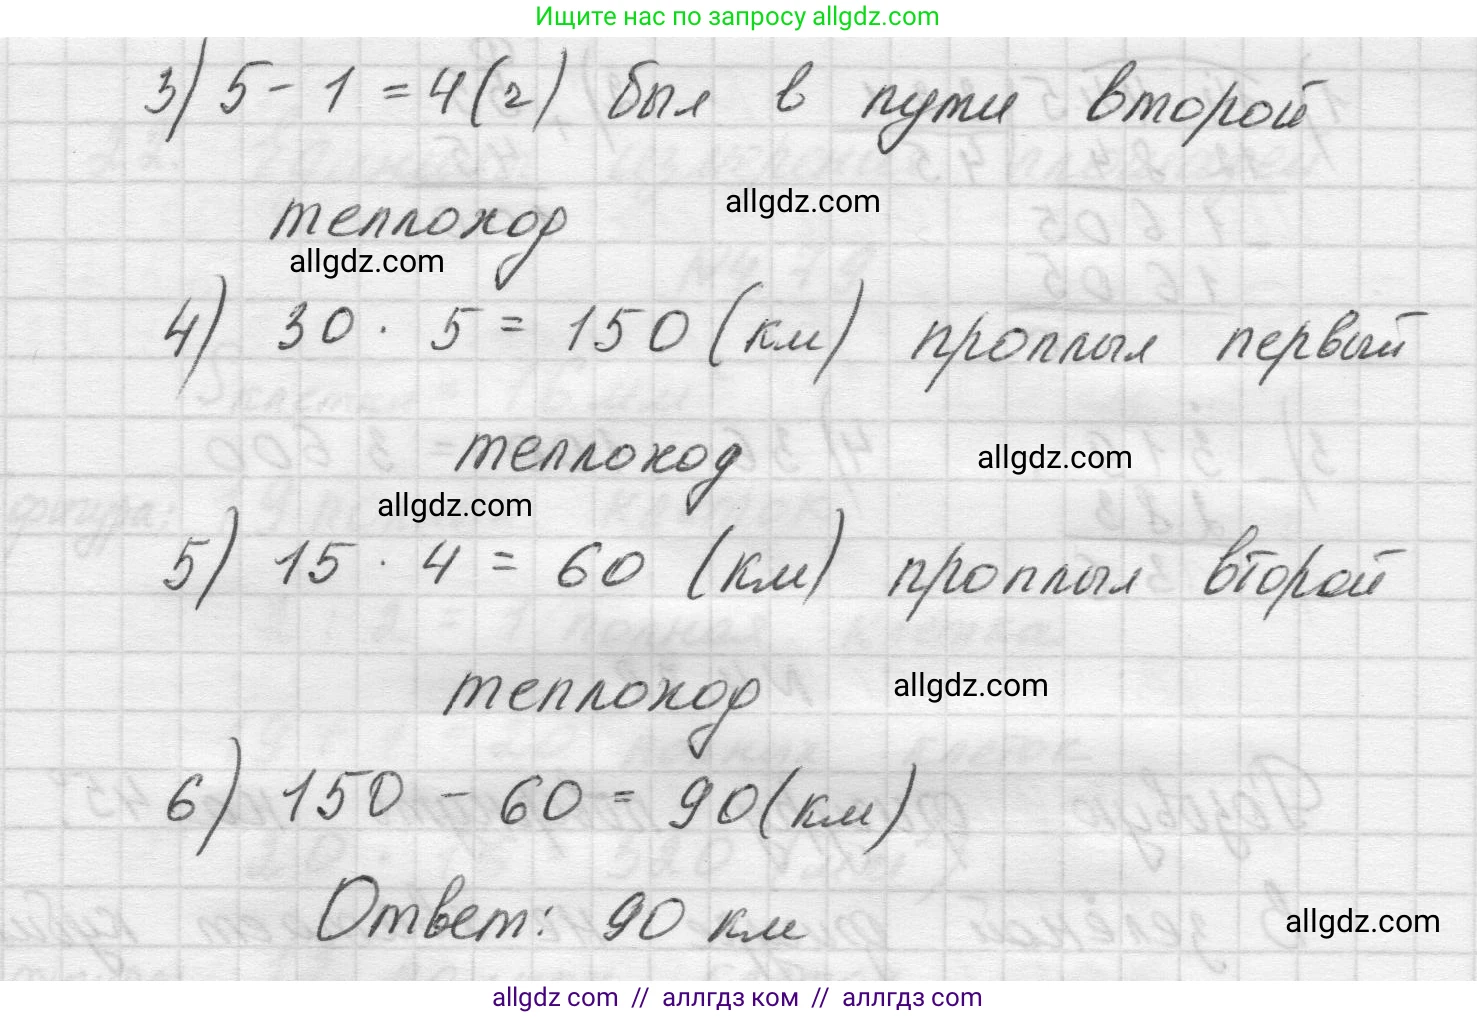 Ищите нас по запросу allgdz.com
3) 5 - 1 = 4 (г) был в пути второй
allgdz.com
теплоход
allgdz.com
4) 30 · 5 = 150 (км) проплыл первый
теплоход
allgdz.com
allgdz.com
5) 15 · 4 = 60 (км) проплыл второй
теплоход
allgdz.com
6) 150 - 60 = 90 (км)
Ответ: 90 км
allgdz.com
allgdz com // аллгдз ком // аллгдз com